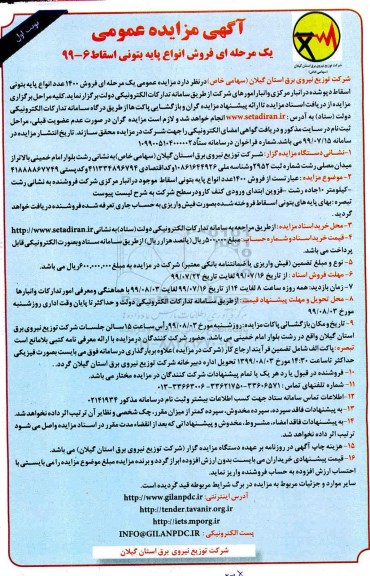 نوبت اول
آگهی مزایده عمومی
یک مرحله ای فروش انواع پایه بتونی اسقاط ۶-۹۹
شرکت توزیع نیروی برق استان گیلان
(سهامی خاص)
شرکت توزیع نیروی برق استان گیلان (سهامی خاص) در نظر دارد مزایده عمومی یک مرحله ای فروش ۱۴۰۰ عدد انواع پایه بتونی
اسقاط دپو شده در انبار مرکزی و انبار امورهای شرکت از طریق سامانه تدارکات الکترونیکی دولت برگزار نماید. کلیه مراحل برگزاری
مزایده از دریافت اسناد مزایده تا ارائه پیشنهاد مزایده گران و بازگشایی پاکت ها از طریق درگاه سامانه تدارکات الکترونیکی
دولت (ستاد) به آدرس : www.setadiran.ir انجام خواهد شد و لازم است مزایده گران در صورت عدم عضویت قبلی، مراحل
ثبت نام در سایت مذکور و دریافت گواهی امضای الکترونیکی را جهت شرکت در مزایده محقق سازند. تاریخ انتشار مزایده در
سامانه ۹۹/۰۷/۱۵ می باشد. شماره فراخوان در سامانه ستاد
۱- نشانی دستگاه مزایده گزار: شرکت توزیع نیروی برق استان گیلان (سهامی خاص) به نشانی رشت بلوار امام خمینی بالاتر از
میدان مصلی رشت شماره ثبت ۲۹۵۲ و شناسه ملی ۱۰۸۶۱۶۴۴۹۲۶ و کد اقتصادی ۴۱۱۳۳۴۸۹۶۷۹۴ و کد پستی ۴۱۸۸۸۶۷۷۴۹
۲- موضوع مزایده : عبارتست از فروش ۱۴۰۰ عدد انواع پایه بتونی اسقاط موجود در انبار مرکزی شرکت فروشنده به نشانی رشت
-کیلومتر ۱۰ جاده رشت - قزوین ابتدای ورودی کنف کار و در سطح شرکت به شرح لیست پیوست
تبصره: بهای پایه های بتونی اسقاط فروخته شده بصورت فیش واریزی به حساب جاری تعرفه شده فروشنده دریافت خواهد
گردید.
۳- محل خرید اسناد مزایده : از طریق مراجعه به سامانه تدارکات الکترونیکی دولت (ستاد) به نشانی http://www.setadiran.ir
۴- قیمت خرید اسناد و شماره حساب : مبلغ ۵۰۰,۰۰۰ ریال (پانصد هزار ریال) از طریق سامانه ستاد و بصورت الکترونیکی قابل
پرداخت می باشد.
۵- نوع و مبلغ تضمین (فیش واریزی یا ضمانتنامه بانکی معتبر) شرکت در مزایده به مبلغ ۶۰۰,۰۰۰,۰۰۰ ریال می باشد.
۶- مهلت فروش اسناد : از تاریخ ۹۹/۰۷/۱۶ لغایت تاریخ ۹۹/۰۷/۲۲
۷- زمان بازدید: همه روزه ساعت ۸ لغایت ۱۴ از تاریخ ۹۹/۰۷/۱۶ لغایت ۹۹/۰۸/۰۳ با هماهنگی و معرفی امور تدارکات و انبارها
۸- محل تحویل و مهلت پیشنهاد قیمت : از طریق سامانه تدارکات الکترونیکی دولت و حداکثر تا پایان وقت اداری روز شنبه
مورخ ۹۹/۰۸/۰۳
۹- تاریخ و مکان بازگشائی پاکات مزایده: روز شنبه مورخ ۹۹/۰۸/۰۳ رأس ساعت ۱۵ سالن جلسات شرکت توزیع نیروی برق
استان گیلان واقع در رشت بلوار امام خمینی می باشد. حضور شرکت کنندگان در مزایده با ارائه معرفی نامه کتبی بلامانع است
تبصره: پاکت الف شامل تضمین فرآیند ارجاع کار (شرکت در مزایده) علاوه بر بارگذاری در سامانه فوق می بایست بصورت فیزیکی
حداکثر تا ساعت ۱۴:۳۰ مورخ ۱۳۹۹/۰۸/۰۳ تحویل اداره دبیرخانه شرکت توزیع نیروی برق استان گیلان گردد.
۱۰- فروشنده در قبول یا رد هر یک یا تمام پیشنهادات شرکت کنندگان در مزایده مختار می باشد.
۱۱- شماره تلفنهای تماس :
۱۲- اطلاعات تماس سامانه ستاد جهت کسب اطلاعات بیشتر و ثبت نام در سامانه مذکور ۰۲۱۴۱۹۳۴
۱۳- به پیشنهادات فاقد سپرده، سپرده مخدوش، سپرده کمتر از میزان مقرر، چک شخصی و نظایر آن ترتیب اثر داده نخواهد شد.
۱۴- به پیشنهادات فاقد امضاء، مشروط، مخدوش و پیشنهاداتی که بعد از انقضاء مدت مقرر در اسناد مزایده واصل می شود
ترتیب اثر داده نخواهد شد.
۱۵- هزینه چاپ آگهی در روزنامه بر عهده دستگاه مزایده گزار (شرکت توزیع نیروی برق استان گیلان) می باشد.
۱۶- قیمت پیشنهادی خریداران می بایست بدون ارزش افزوده ابراز گردد و برنده مزایده مبلغ موضوع مزایده را می بایستی با
احتساب ارزش افزوده به حساب فروشنده واریز نماید.
سایر موارد و جزئیات مربوط به مزایده در برگ شرایط مربوطه قید گردیده است.
آدرس اینترنتی: http://www.gilanpdc.ir
http://tender.tavanir.org.ir
http://iets.mporg.ir
پست الکترونیکی : INFO@GILANPDC.IR
شرکت توزیع نیروی برق استان گیلان